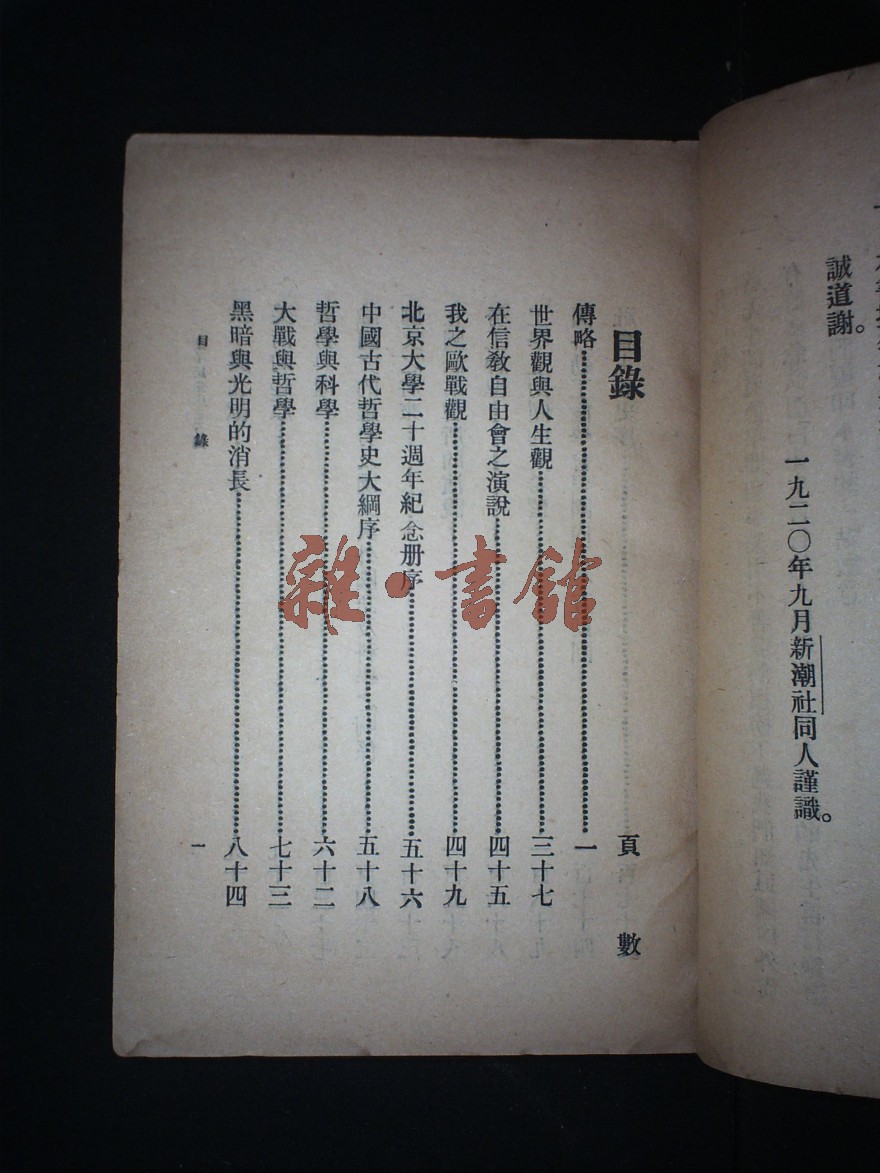 誠道謝。
一九二〇年九月新潮社同人謹識。
目錄 頁數
傳略 一
世界觀與人生觀 三十七
在信教自由會之演說 四十五
我之歐戰觀 四十九
北京大學二十週年紀念册序 五十六
中國古代哲學史大綱序 五十八
哲學與科學 六十二
大戰與哲學 七十三
黑暗與光明的消長 八十四
目錄 一
雜·書館